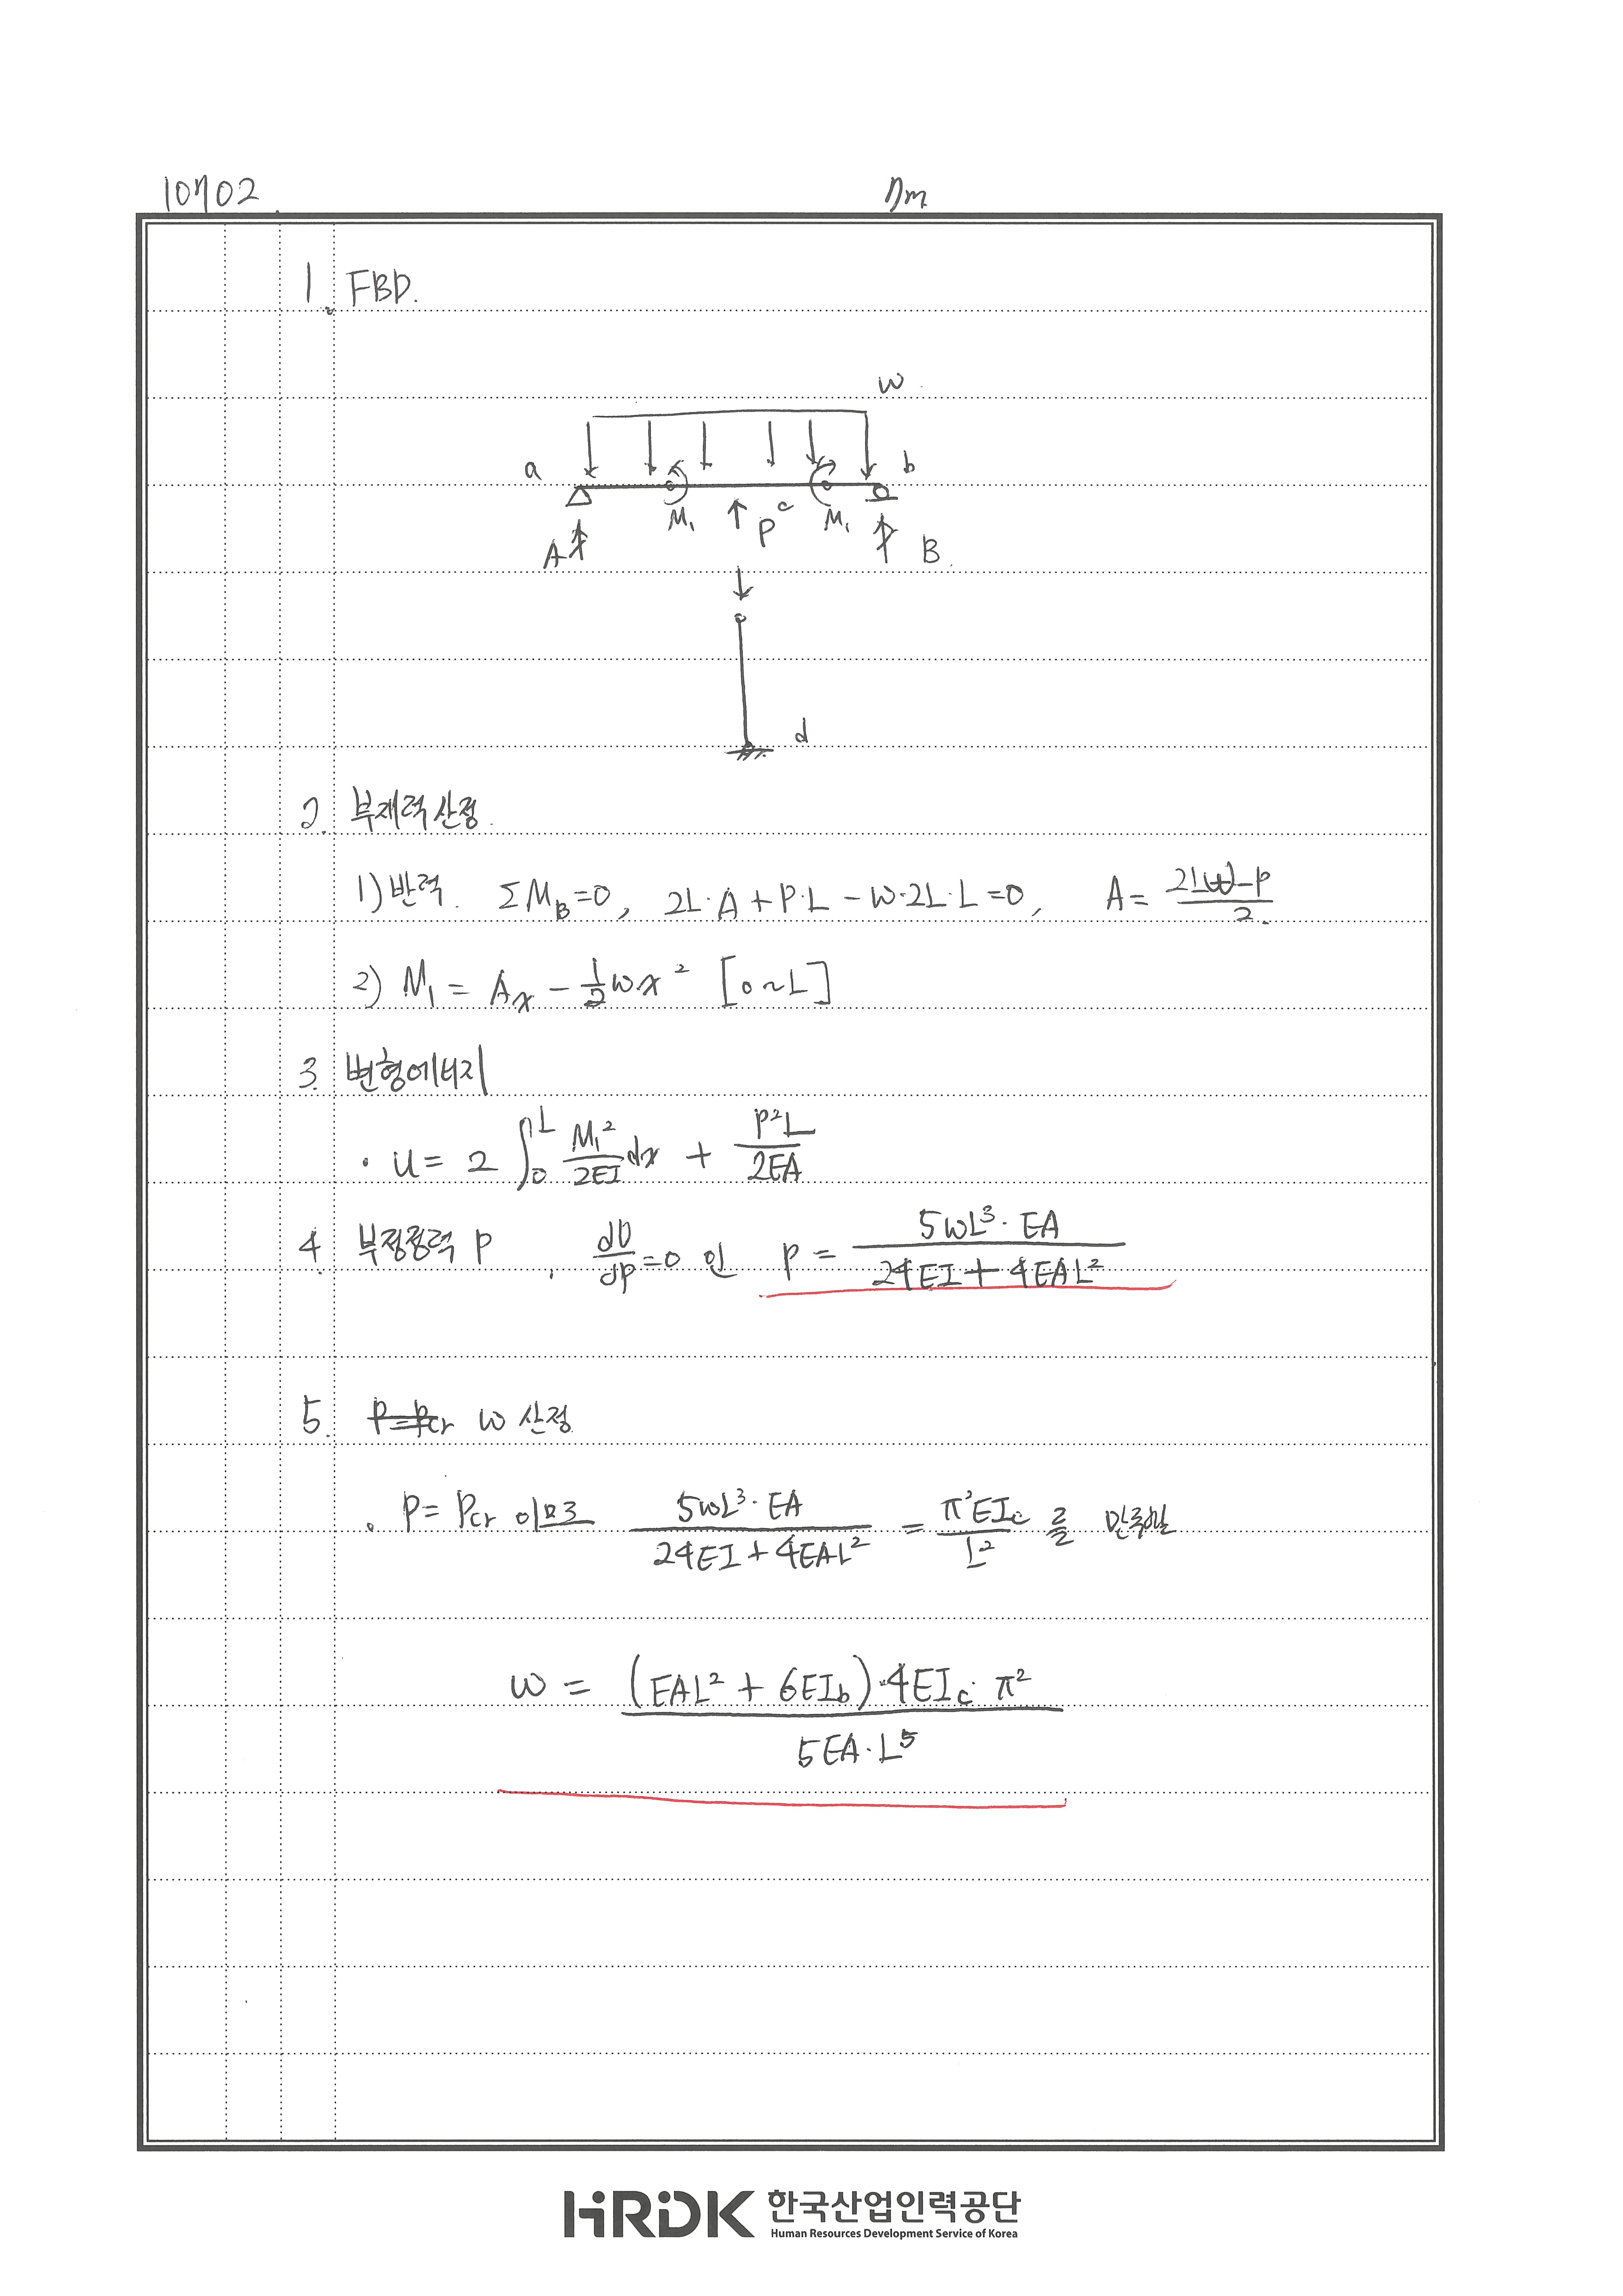 10702 7m
1. FBD.
w
a b
M₁ ↑ P c M₁
A B
d
2. 부재력 산정.
1) 반력. ΣM_B=0, 2L·A+P·L-w·2L·L=0, A=(2Lw-P)/2.
2) M₁ = Ax - 1/2wx² [0~L]
3. 변형에너지
· U= 2∫₀ᴸ M₁²/2EI dx + P²L/2EA
4. 부정정력 P . dU/dP=0 인 P = 5wL³·EA/(24EI+4EAL²)
5. w 산정
. P=Pcr 이므로 5wL³·EA/(24EI+4EAL²) = π²EIc/L² 를 만족할
w = (EAL²+6EI_b)·4EIc·π²/(5EA·L⁵)
HRDK 한국산업인력공단
Human Resources Development Service of Korea